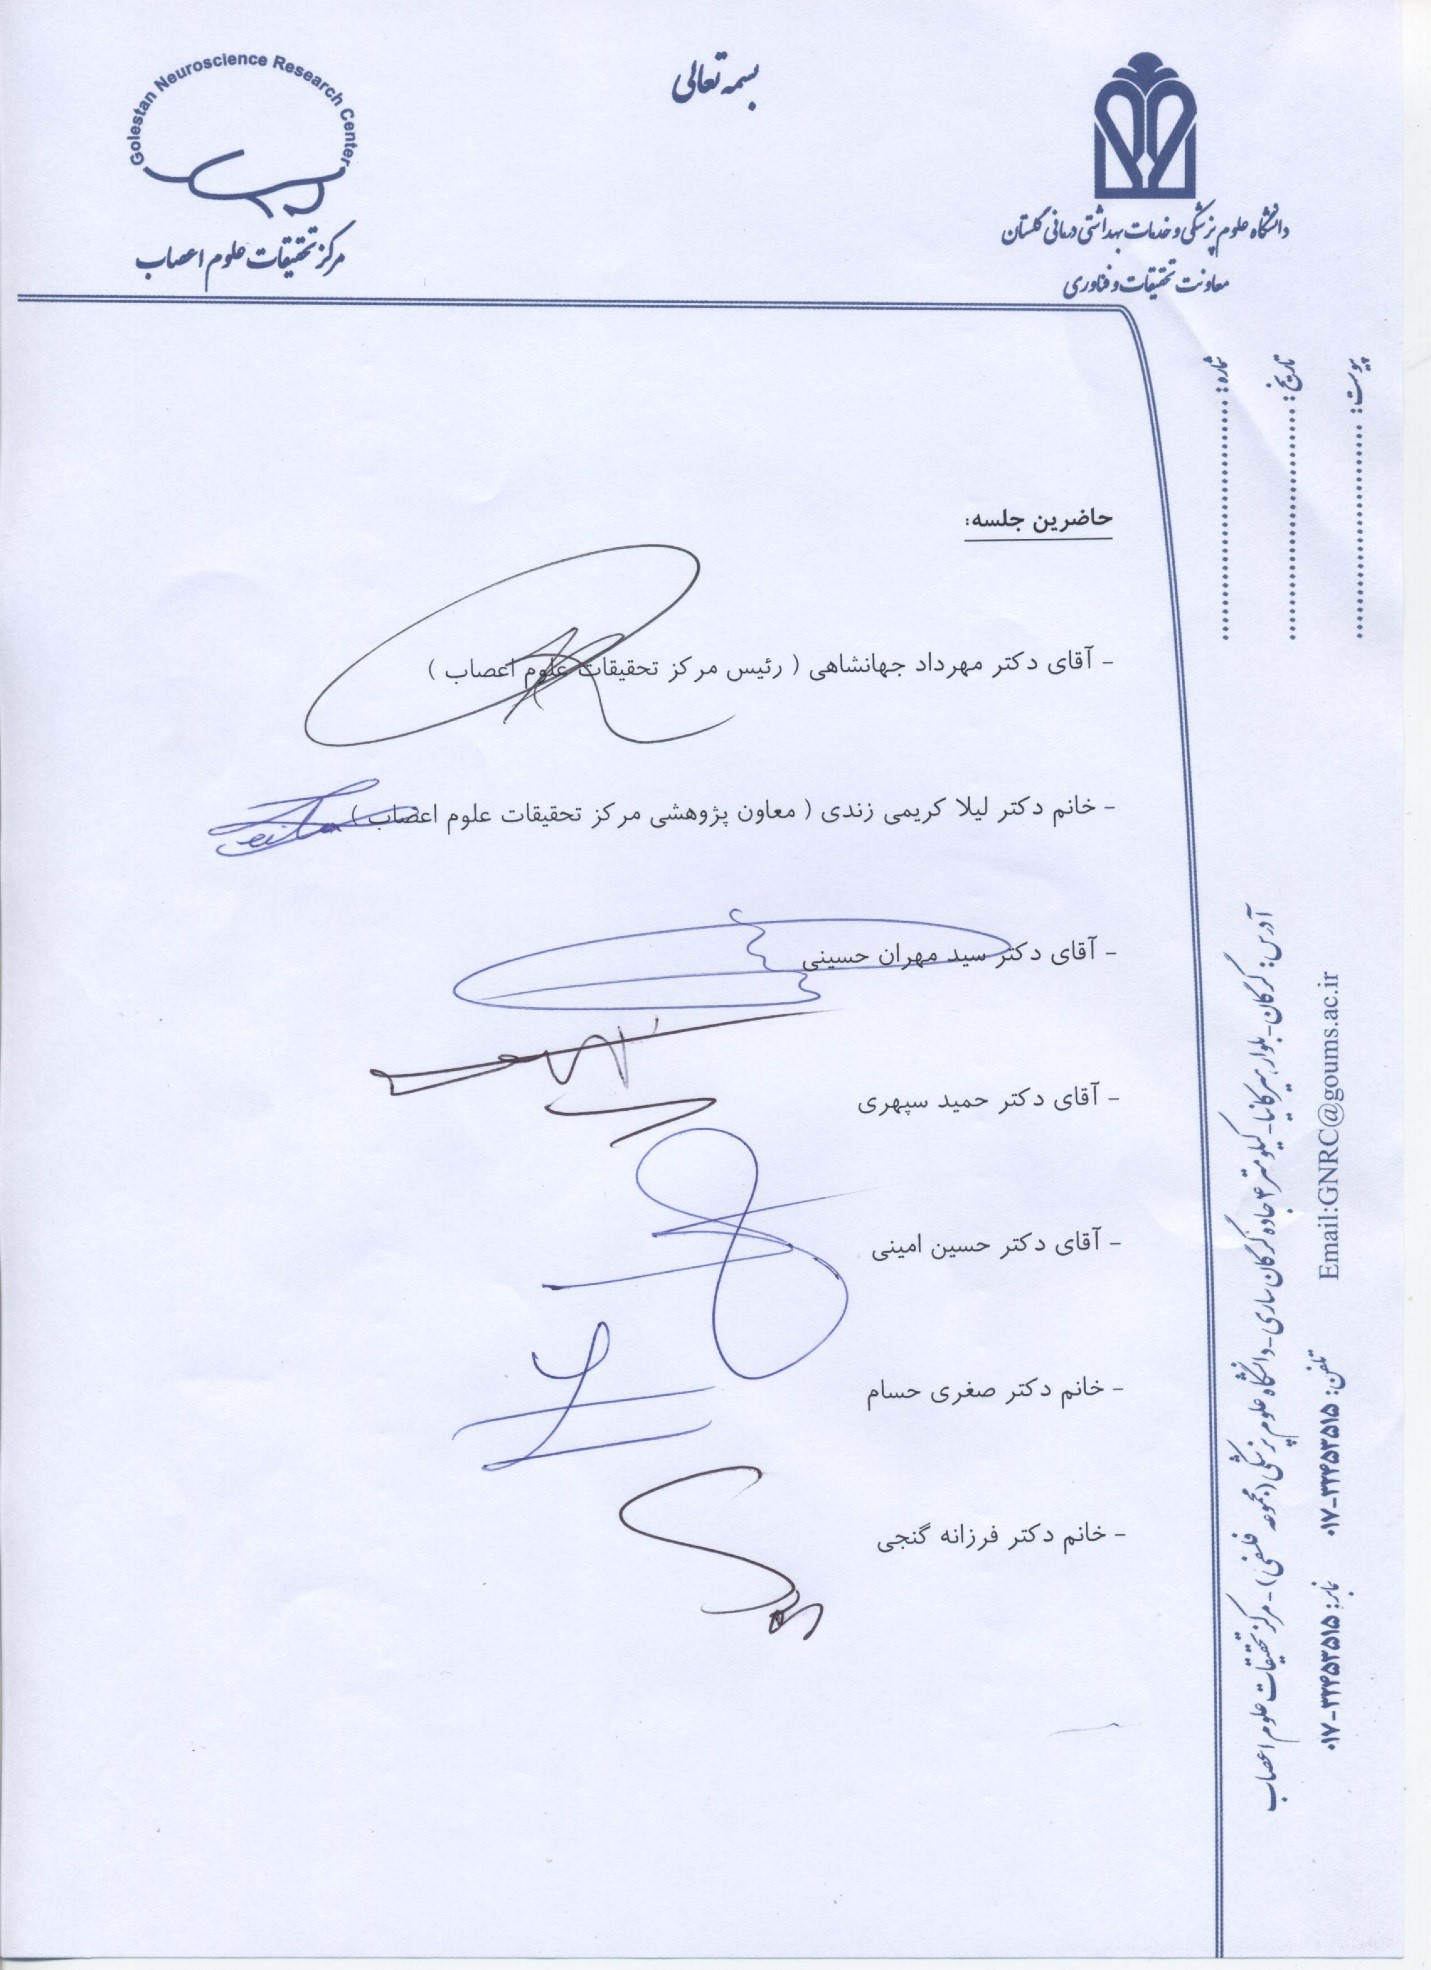 بسمه تعالی
Golestan Neuroscience Research Center
مرکز تحقیقات علوم اعصاب
دانشگاه علوم پزشکی و خدمات بهداشتی درمانی گلستان
معاونت تحقیقات و فناوری
شماره: ........................
تاریخ: ........................
پیوست: ........................
حاضرین جلسه:
- آقای دکتر مهرداد جهانشاهی ( رئیس مرکز تحقیقات علوم اعصاب )
- خانم دکتر لیلا کریمی زندی ( معاون پژوهشی مرکز تحقیقات علوم اعصاب )
- آقای دکتر سید مهران حسینی
- آقای دکتر حمید سپهری
- آقای دکتر حسین امینی
- خانم دکتر صغری حسام
- خانم دکتر فرزانه گنجی
آدرس: گرگان - بلوار هیرکانیا - کیلومتر ۴ جاده گرگان ساری - دانشگاه علوم پزشکی (مجموعه فلسفی) - مرکز تحقیقات علوم اعصاب
Email:GNRC@goums.ac.ir
تلفن: ۰۱۷-۳۲۴۵۳۵۱۵
نمابر: ۰۱۷-۳۲۴۵۳۵۱۵